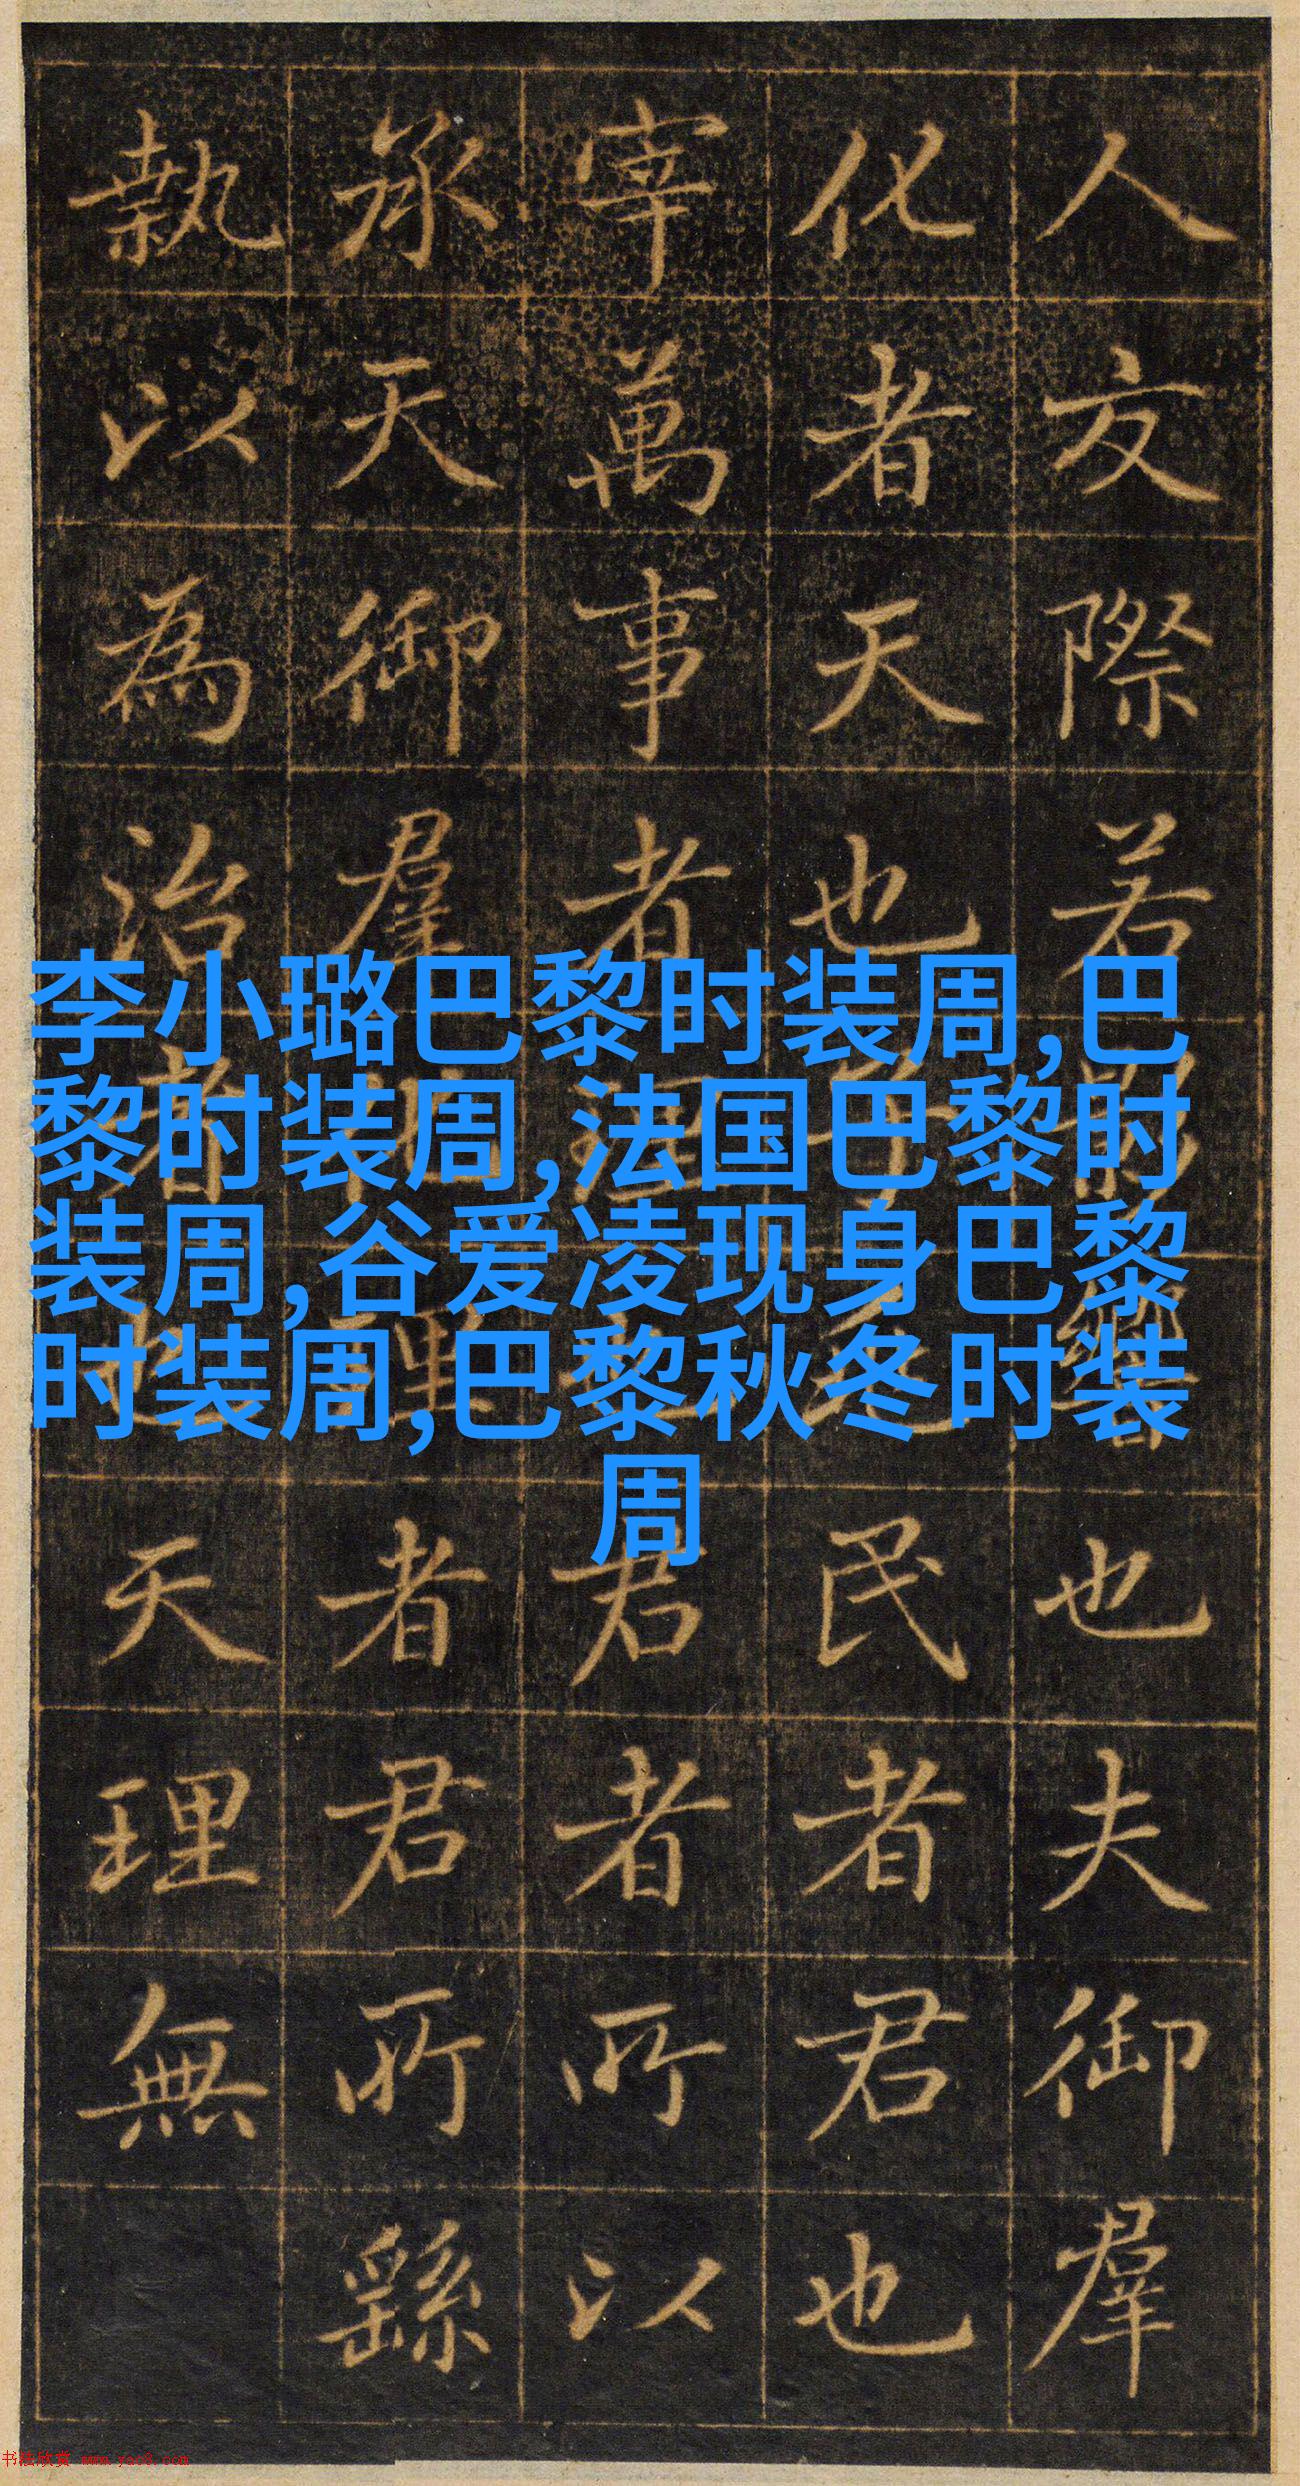 人交際若也夫御羣
化者天也民者君也
宰萬事者君者所以
承天御羣理者君所繇
執以為治者天理無
李小璐巴黎时装周,巴
黎时装周,法国巴黎时
装周,谷爱凌现身巴黎
时装周,巴黎秋冬时装
周
书法欣赏 www.yac8.com